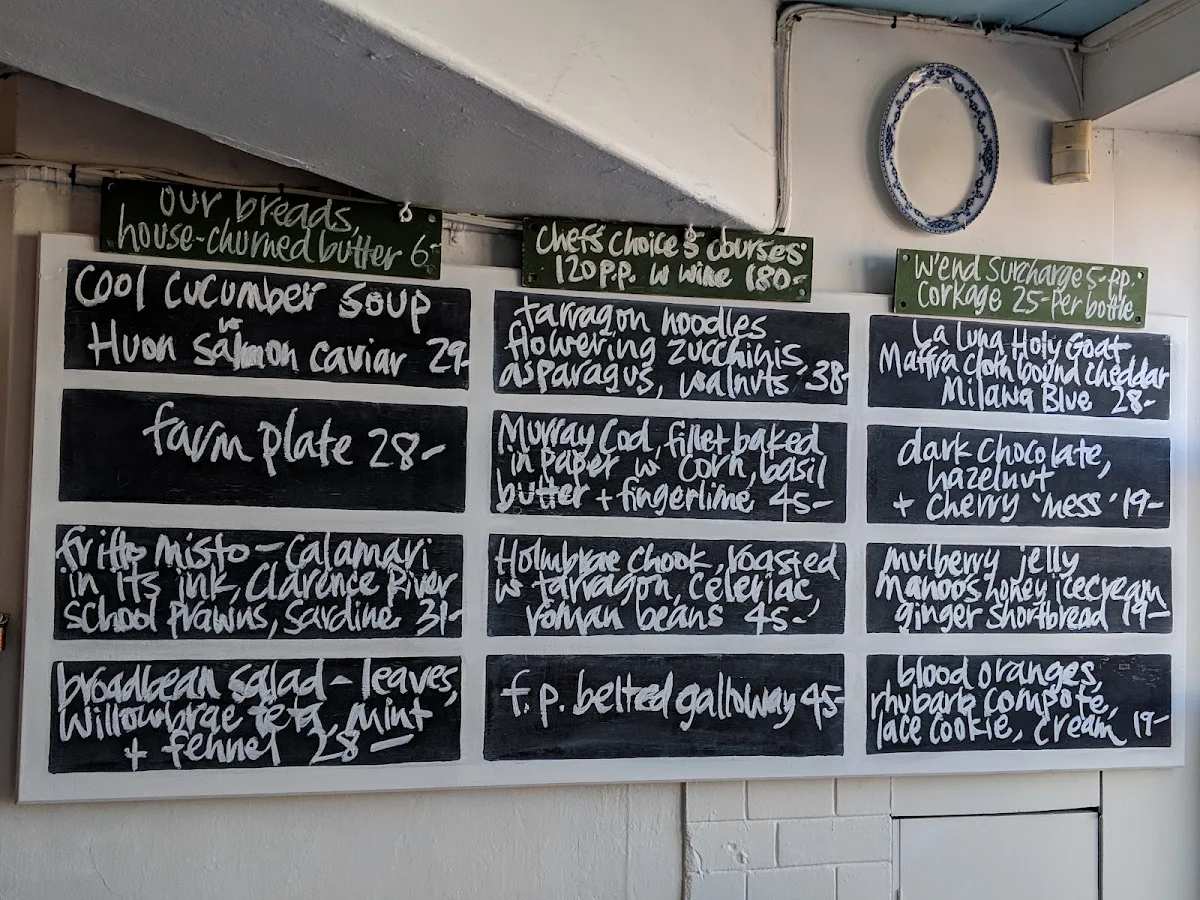 our breads,
house-churned butter 6-
Cool cucumber soup
w
Huon salmon caviar 29-
farm plate 28-
fritto misto - calamari
in its ink, Clarence River
school prawns, sardine 31-
broadbean salad - leaves,
Willowbrae feta, mint
+ fennel 28 -
Chef's choice 5 courses
120 p.p. w wine 180-
tarragon noodles
flowering zucchinis,
asparagus, walnuts 38-
Murray Cod, fillet baked
in paper w corn, basil
butter + fingerlime 45-
Holmbrae chook, roasted
w tarragon, celeriac,
roman beans 45-
f.p. belted galloway 45-
W'end Surcharge 5- pp.
Corkage 25- per bottle
La Luna Holy Goat
Maffra cloth bound cheddar
Milawa Blue 28-
dark chocolate,
hazelnut
+ cherry 'mess' 19-
mulberry jelly
manoos honey icecream
ginger shortbread 19-
blood oranges,
rhubarb compote,
lace cookie, cream 19-